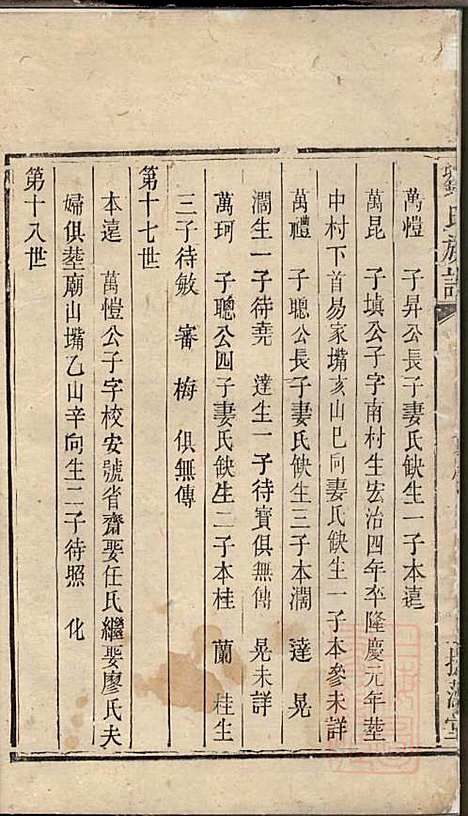 氏族譜
萬愷 子昇公長子妻氏缺生一子本遠
萬昆 子填公子字南村生宏治四年卒隆慶元年塟
中村下首易家嘴亥山巳向妻氏缺生一子本參未詳
萬禮 子聰公長子妻氏缺生三子本濶 達 晃
濶生一子待堯 達生一子待寶俱無傳 晃未詳
萬珂 子聰公四子妻氏缺生二子本桂 蘭 桂生
三子待敏 審 梅 俱無傳
第十七世
本遠 萬愷公子字校安號省齋娶任氏繼娶廖氏夫
婦俱塟廟山嘴乙山辛向生二子待照 化
第十八世